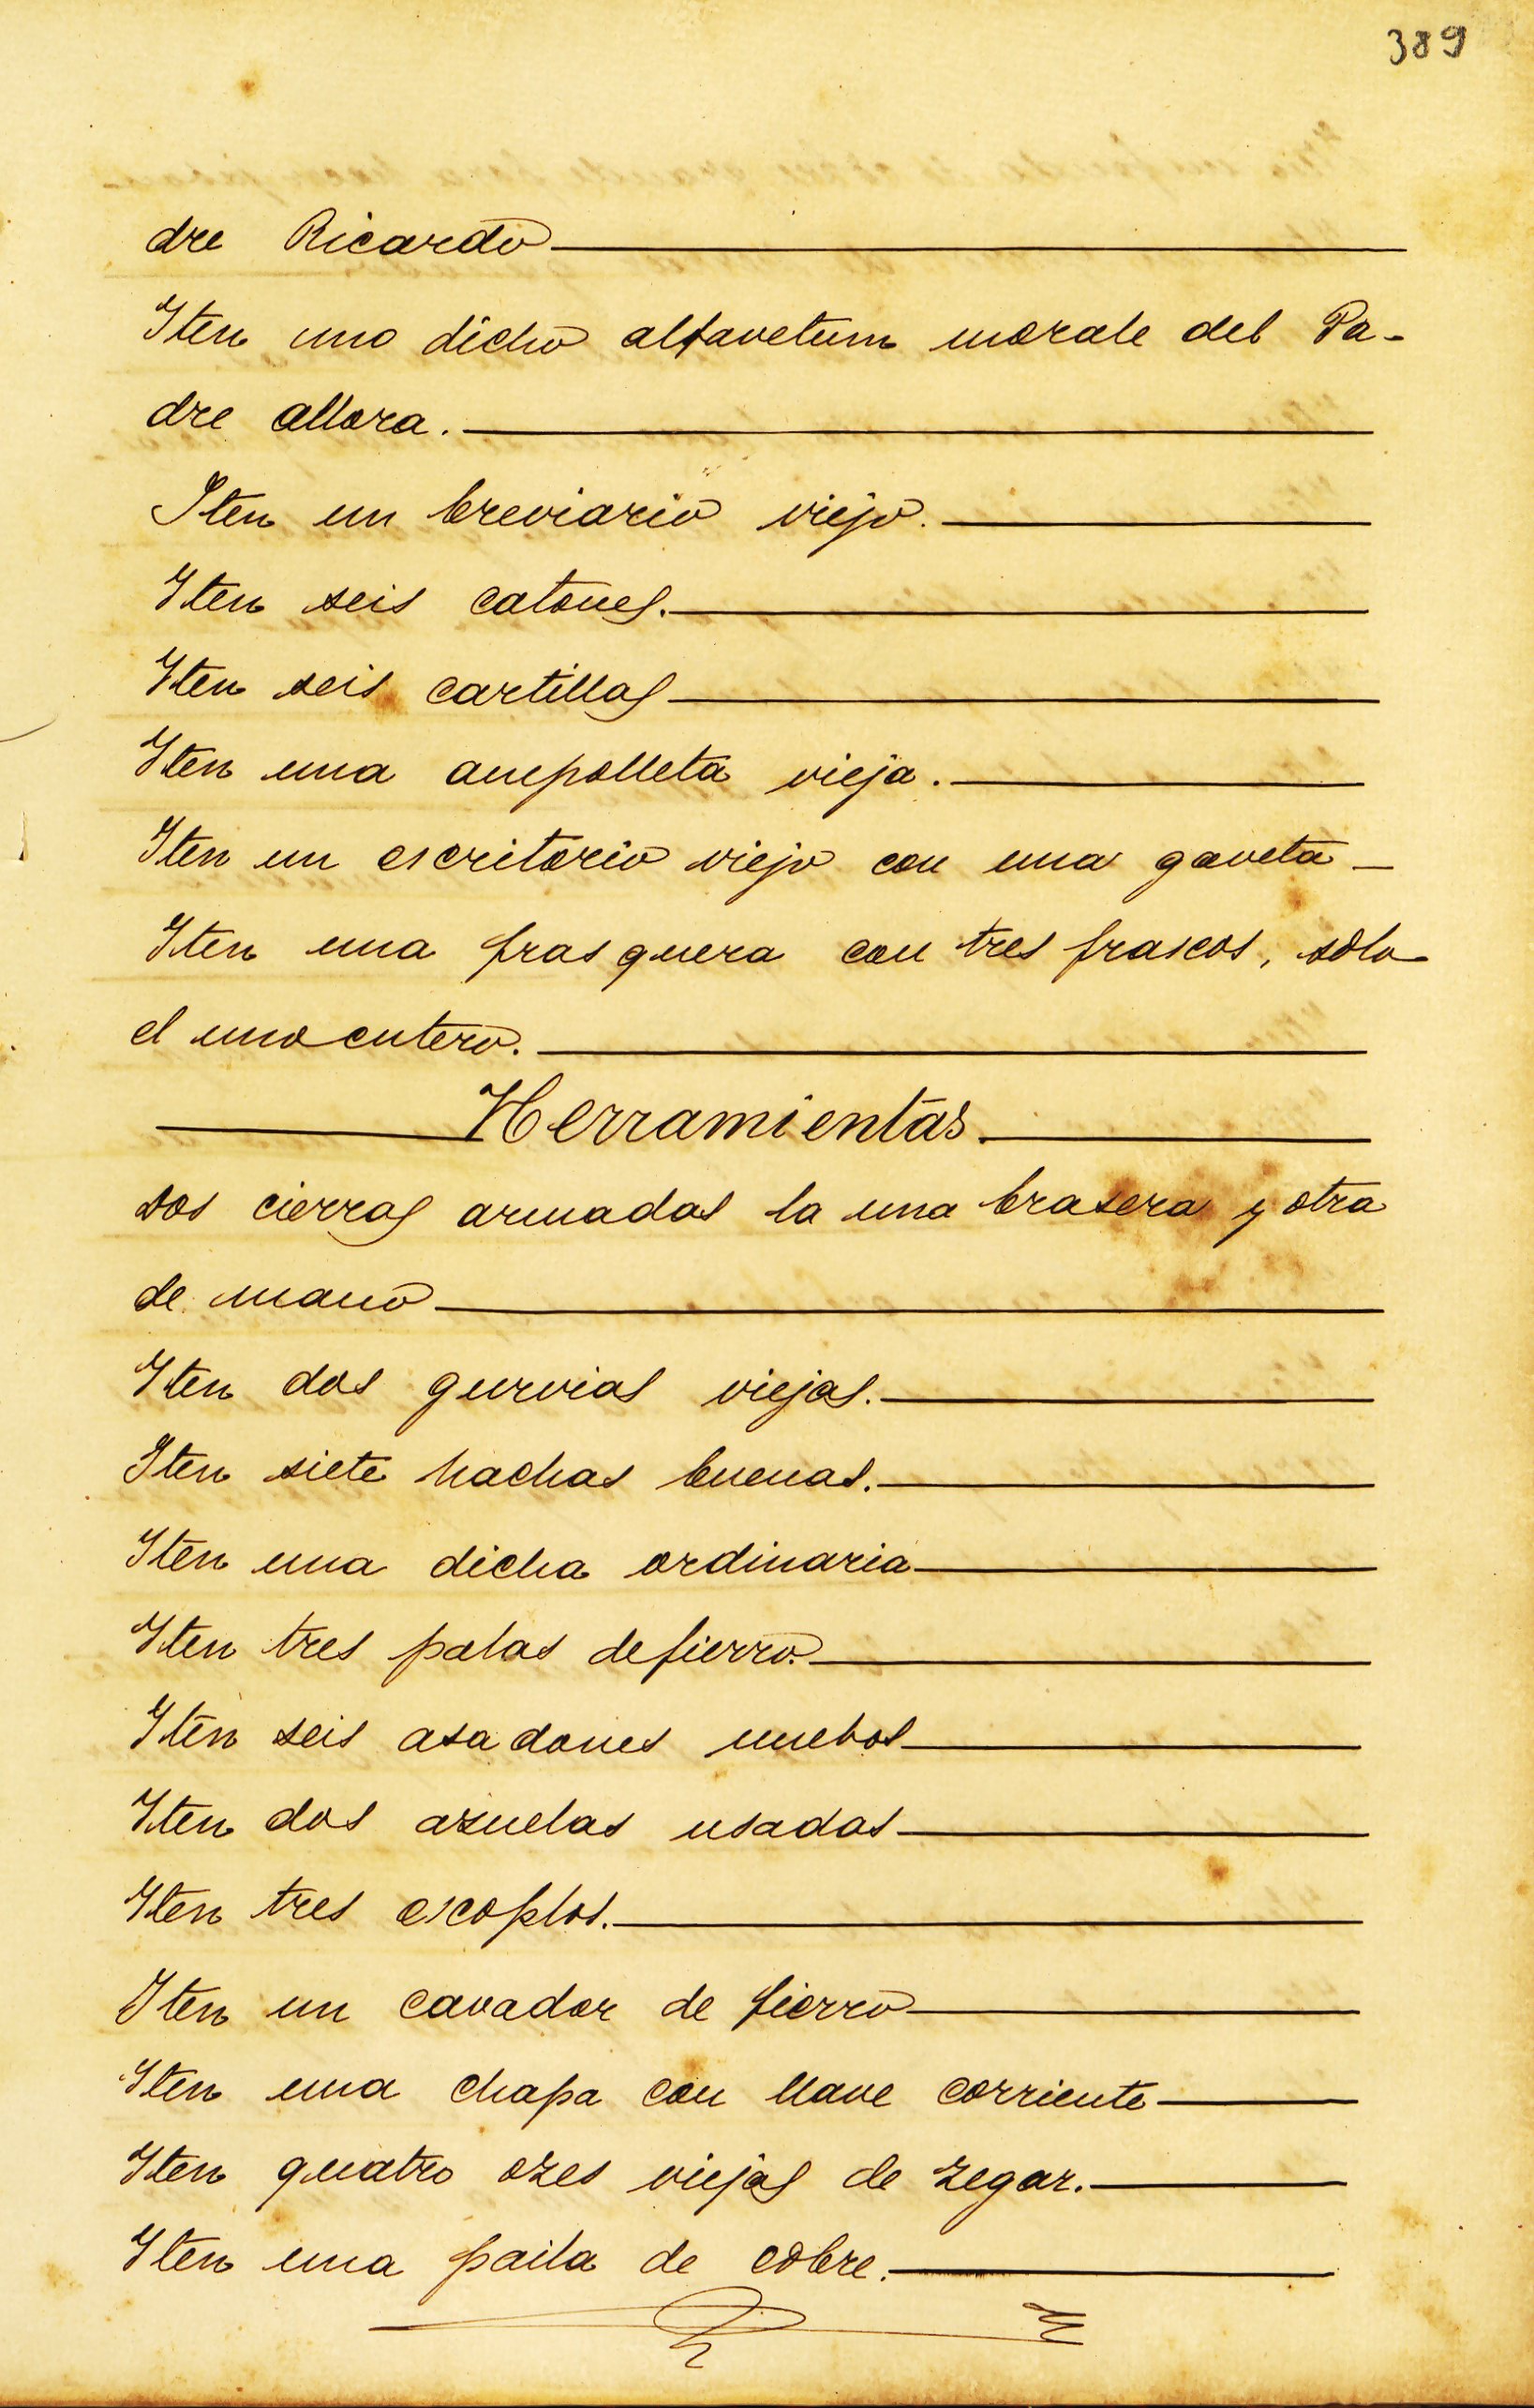 389
dre Ricardo
Iten uno dicho alfavetum morale del Pa-
dre allora.
Iten un breviario viejo.
Iten seis catones.
Iten seis cartillas
Iten una ampolleta vieja.
Iten un escritorio viejo con una gaveta
Iten una frasquera con tres frascos, solo
el uno entero.
Herramientas.
Dos cierras armadas la una brasera y otra
de mano
Iten dos gurvias viejas.
Iten siete hachas buenas.
Iten una dicha ordinaria
Iten tres palas de fierro.
Iten seis asadones nuebos
Iten dos azuelas usadas
Iten tres escoplos.
Iten un cavador de fierro
Iten una chapa con llave corriente
Iten quatro ozes viejas de zegar.
Iten una paila de cobre.